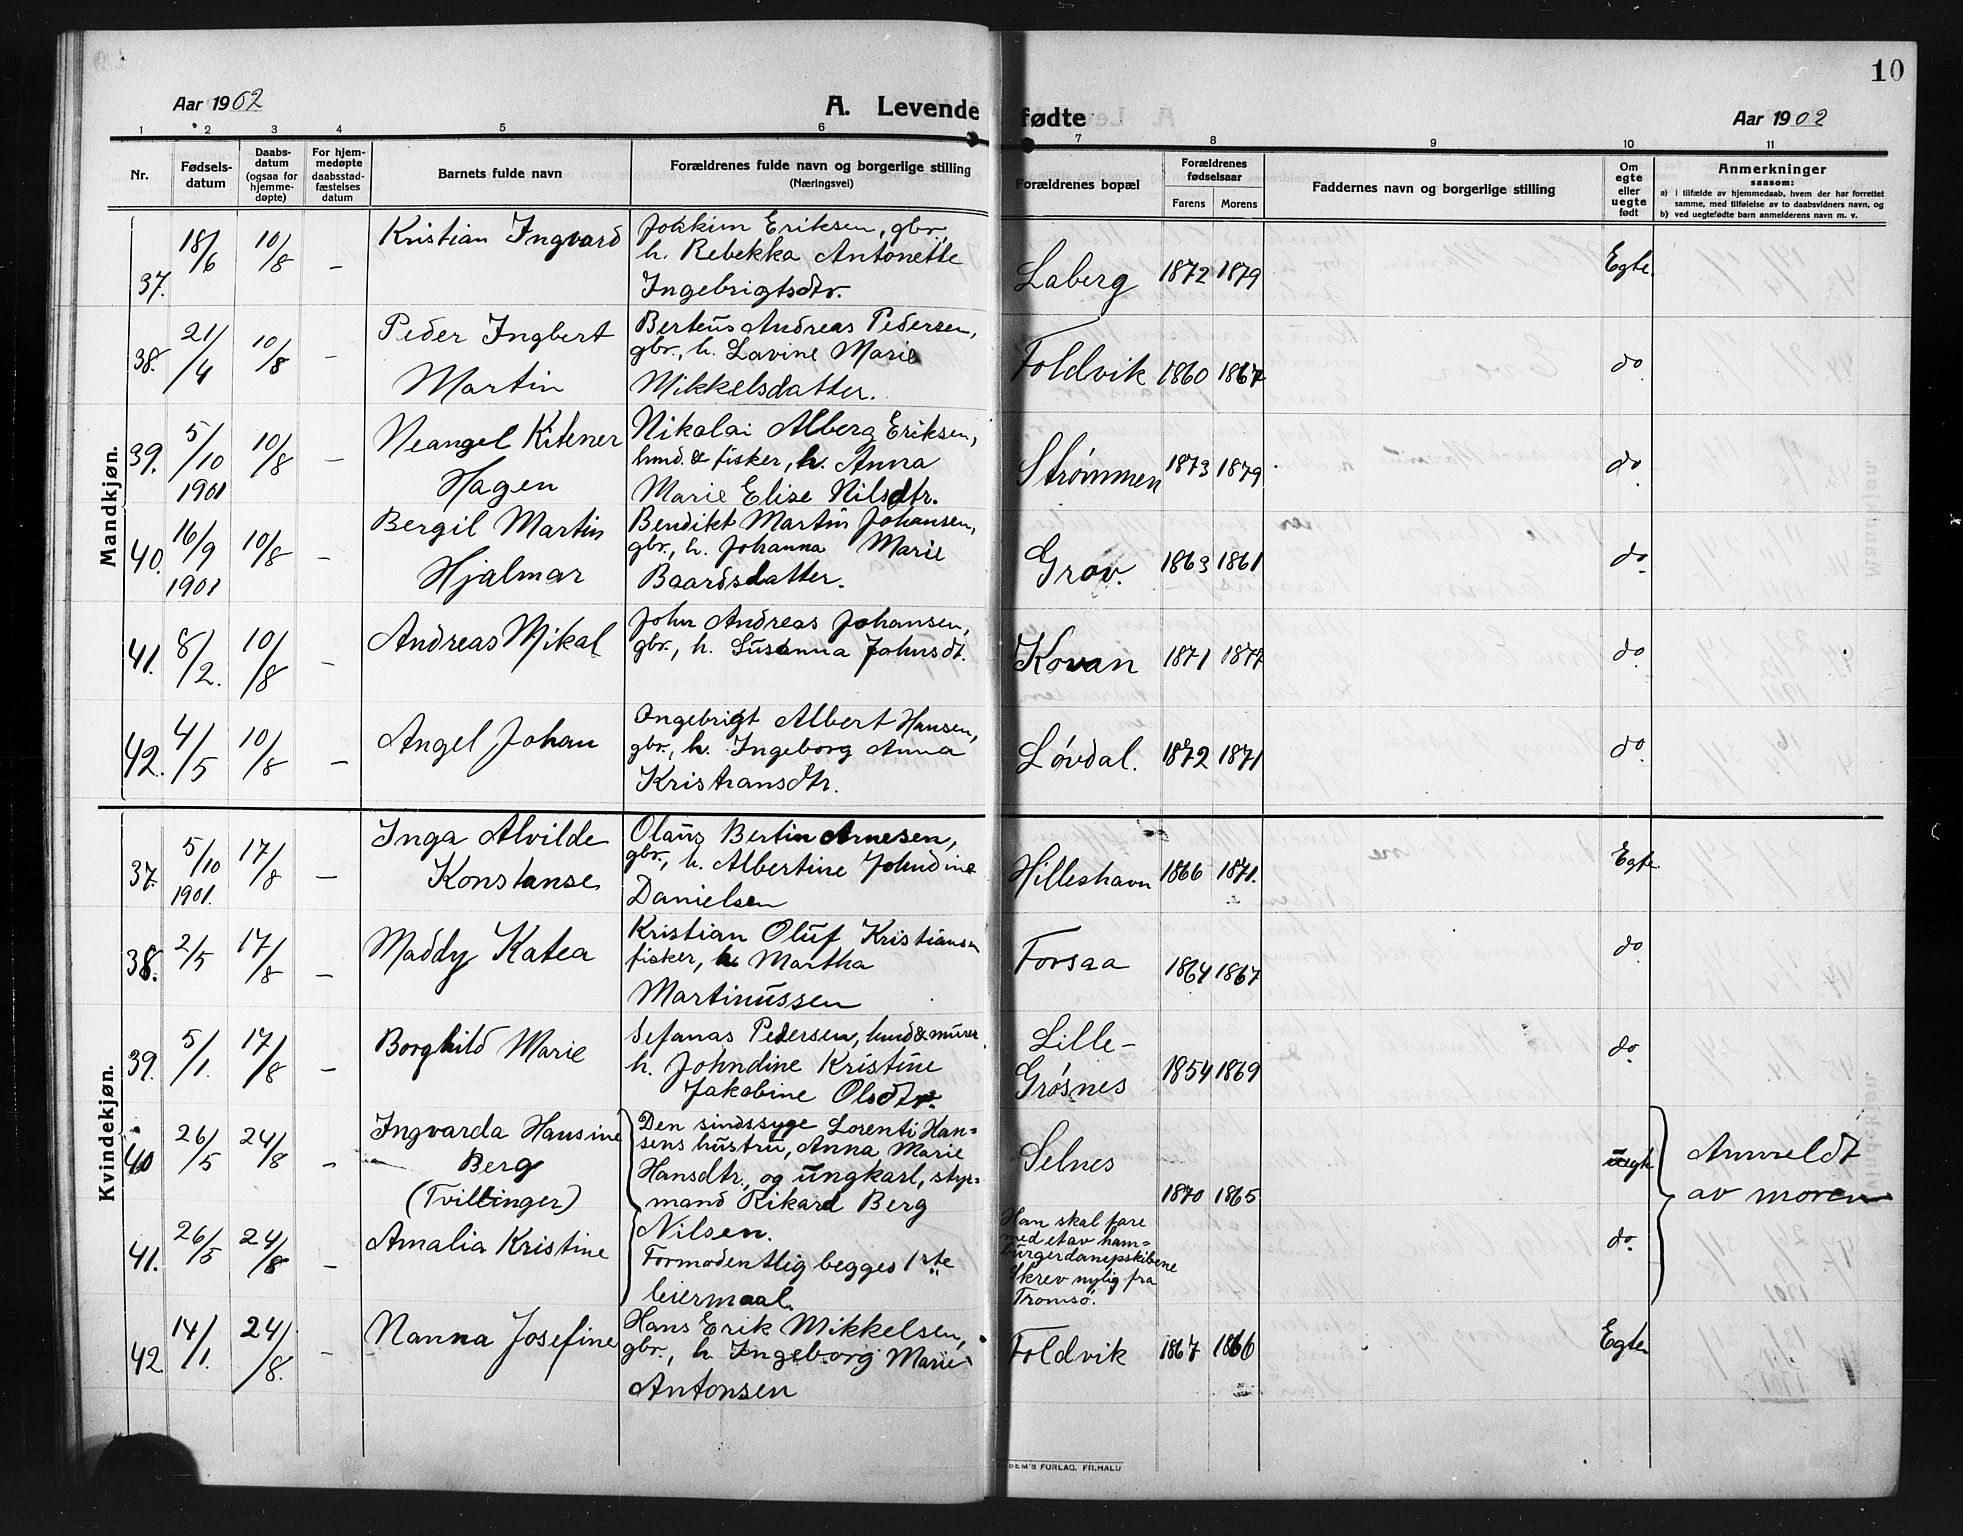 10
Aar 1902
A. Levende fødte
Aar 1902
1 2 3 4 5 6 7 8 9 10 11
Nr.
Fødsels-
datum
Daabs-
datum
(ogsaa for
hjemme-
døpte)
For hjem-
medøpte
daabsstad-
fæstelses
datum
Barnets fulde navn
Forældrenes fulde navn og borgerlige stilling
(Næringsvei)
Forældrenes bopæl
Forældrenes
fødselsaar
Farens Morens
Faddernes navn og borgerlige stilling
Om
egte
eller
uegte
født
Anmerkninger
saasom:
a) i tilfælde av hjemmedaab, hvem der har forrettet
samme, med tilføielse av to daabsvidners navn, og
b) ved uegtefødte barn anmelderens navn m. v.
Mandkjøn.
37. 18/6 10/8 – Kristian Ingvard
Joakim Eriksen, gbr,
h. Rebekka Antonette
Ingebrigtsdtr.
Laberg 1872 1879 Egte
38. 21/4 10/8 – Peder Ingbert
Martin
Bertëus Andreas Pedersen,
gbr., h. Lavine Marie
Mikkelsdatter.
Foldvik 1860 1867 do
39. 5/10 1901 10/8 – Neangel Kitener
Hagen
Nikolai Alberg Eriksen,
hmd. & fisker, h. Anna
Marie Elise Nilsdtr.
Strømmen 1873 1879 do
40. 16/9 1901 10/8 – Bergil Martin
Hjalmar
Bendikt Martin Johansen,
gbr., h. Johanna Marie
Baardsdatter.
Grov. 1863 1861 do
41. 8/2. 10/8 – Andreas Mikal
John Andreas Johansen,
gbr., h. Susanna Johnsdt.
Kovan 1871 1877 do
42. 4/5 10/8 – Angel Johan
Ongebrigt Albert Hansen,
gbr., h. Ingeborg Anna
Kristiansdtr.
Løvdal. 1872 1871 do
Kvindekjøn.
37. 5/10 1901. 17/8 – Inga Alvilde
Konstanse
Olaus Bertin Arnesen,
gbr., h. Albertine Johndine
Danielsen
Hilleshavn 1866 1871. Egte
38. 2/5 17/8 – Maddy Katea
Kristian Oluf Kristiansen
fisker, h. Martha
Martinussen
Forsaa 1864 1867 do
39. 5/1. 17/8 – Borghild Marie
Sefanas Pedersen, hmd & murer
h. Johndine Kristine
Jakobine Olsdtr.
Lille-
Grøsnes 1854 1869 do
40 26/5 24/8 – Ingvarda Hansine
Berg
(Tvillinger)
Den sindssyge Lorents Han=
sens hustru, Anna Marie
Hansdtr., og ungkarl, styr=
mand Rikard Berg
Selnes 1870 1865 uegte
Anmeldt
av moren
41. 26/5 24/8 – Amalia Kristine
Nilsen.
Formodentlig begges 1ste
leiermaal.
Han skal fare
med et av ham=
burgerdampskibene
Skrev nylig fra
Tromsø.
do.
42 14/1. 24/8. – Nanna Josefine
Hans Erik Mikkelsen,
gbr., h Ingeborg Marie
Antonsen
Foldvik 1867 1866 Egte
SEM'S FORLAG, FR.HALD